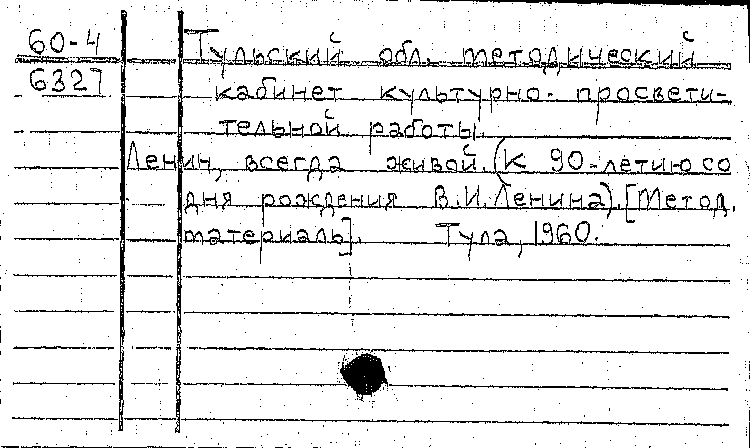 60-4
6327
Тульский обл. методический
кабинет культурно-просвети-
тельной работы.
Ленин, всегда живой. (К 90-летию со
дня рождения В.И.Ленина). [Метод.
материалы]. Тула, 1960.